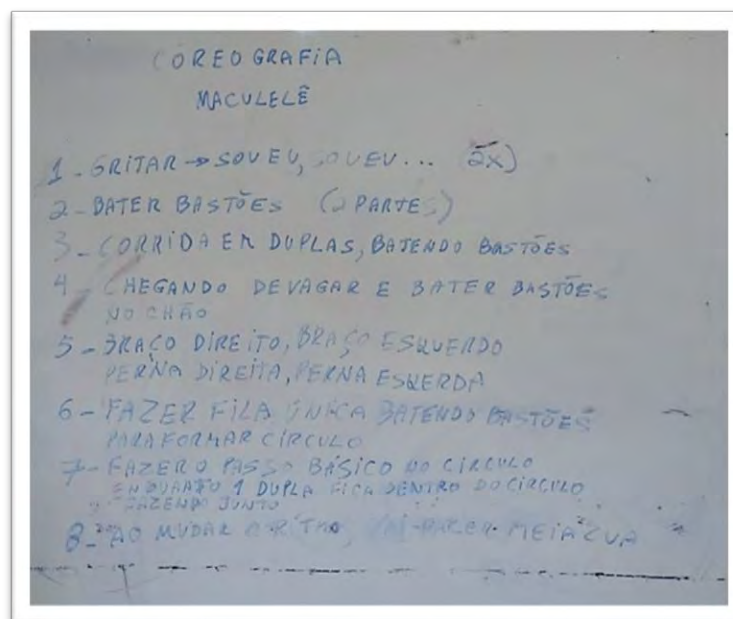 COREOGRAFIA
MACULELÊ
1- GRITAR → SOU EU, SOU EU... (2X)
2- BATER BASTÕES (2 PARTES)
3- CORRIDA EM DUPLAS, BATENDO BASTÕES
4- CHEGANDO DEVAGAR E BATER BASTÕES
NO CHÃO
5- BRAÇO DIREITO, BRAÇO ESQUERDO
PERNA DIREITA, PERNA ESQUERDA
6- FAZER FILA ÚNICA BATENDO BASTÕES
PARA FORMAR CÍRCULO
7- FAZER O PASSO BÁSICO NO CÍRCULO
ENQUANTO 1 DUPLA FICA DENTRO DO CÍRCULO
FAZENDO JUNTO
8- AO MUDAR O RITMO, MEIA LUA